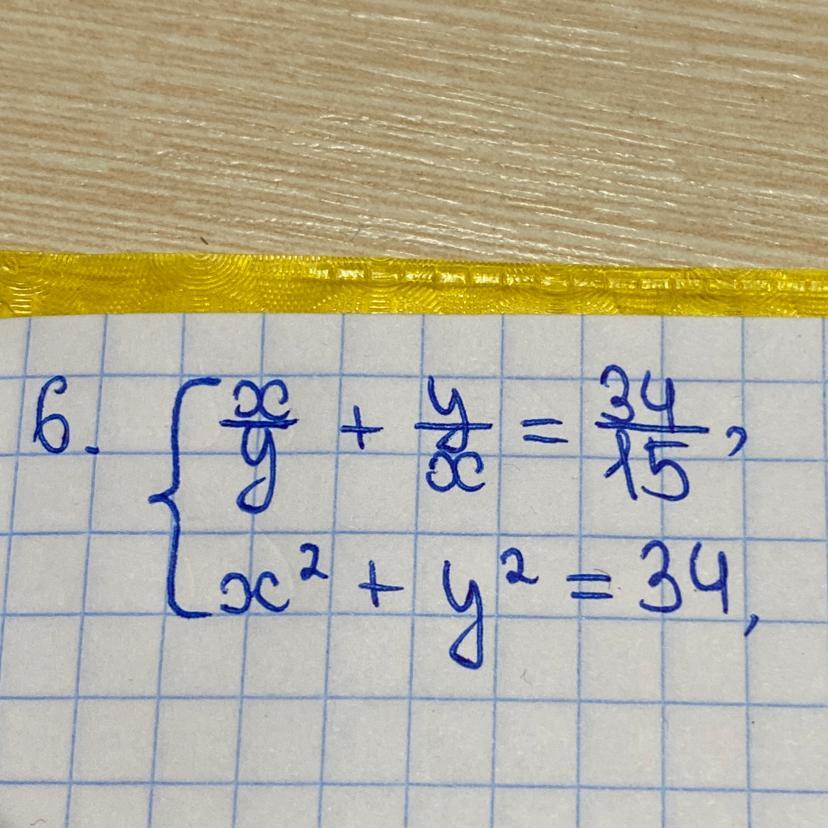 6. { x/y + y/x = 34/15,
x² + y² = 34,